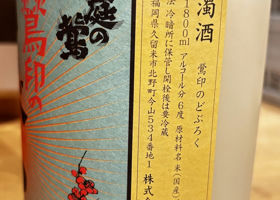 庭の鶯
鶯印の
濁酒
鶯印のどぶろく
1800ml アルコール分6度 原材料名 米(国産)
法 冷暗所に保管し開栓後は要冷蔵
福岡県久留米市北野町今山534番地1 株式会